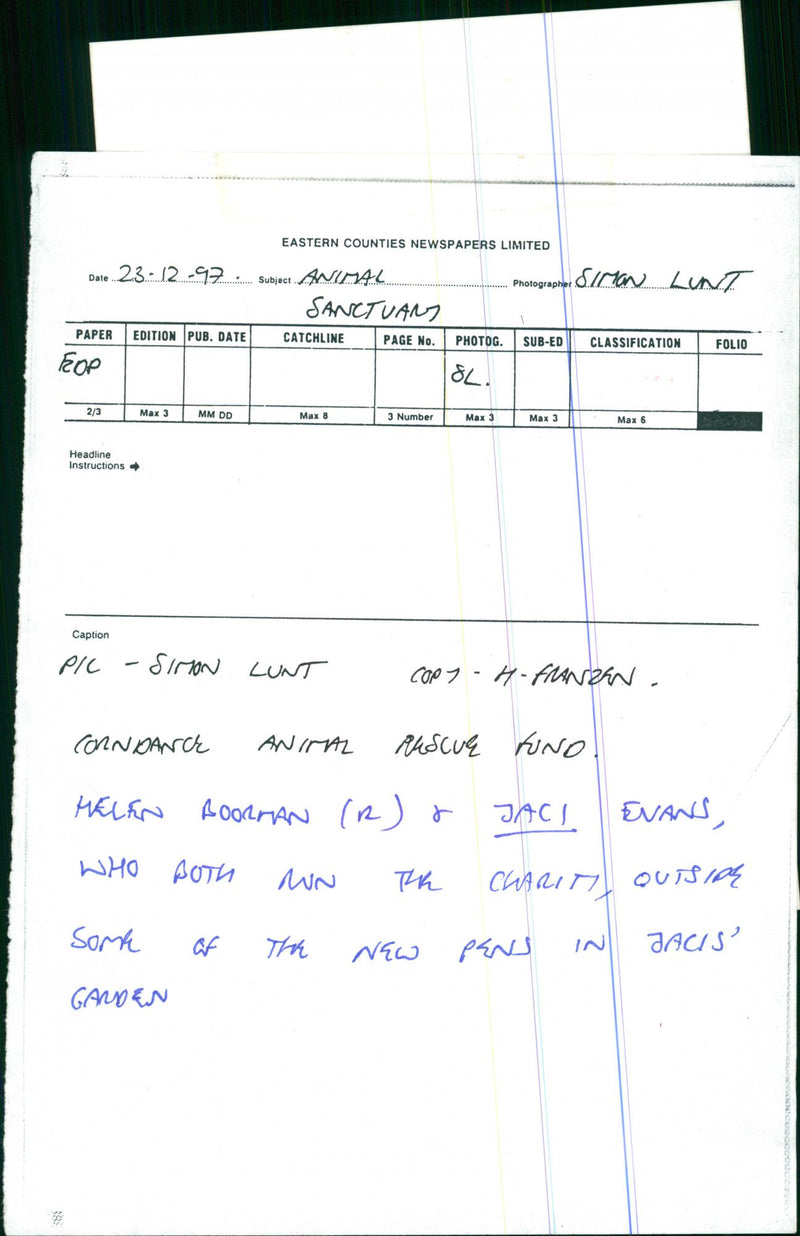 EASTERN COUNTIES NEWSPAPERS LIMITED
Date 23-12-97. Subject ANIMAL Photographer SIMON LUNT
SANCTUARY
PAPER EDITION PUB. DATE CATCHLINE PAGE No. PHOTOG. SUB-ED CLASSIFICATION FOLIO
EOP SL.
2/3 Max 3 MM DD Max 8 3 Number Max 3 Max 3 Max 6
Headline
Instructions →
Caption
PIC - SIMON LUNT COPY - H-FRANZEN.
CORNDANCE ANIMAL RESCUE FUND.
HELEN BOORMAN (R) & JACI EVANS,
WHO BOTH RUN THE CHARITY, OUTSIDE
SOME OF THE NEW PENS IN JACIS'
GARDEN